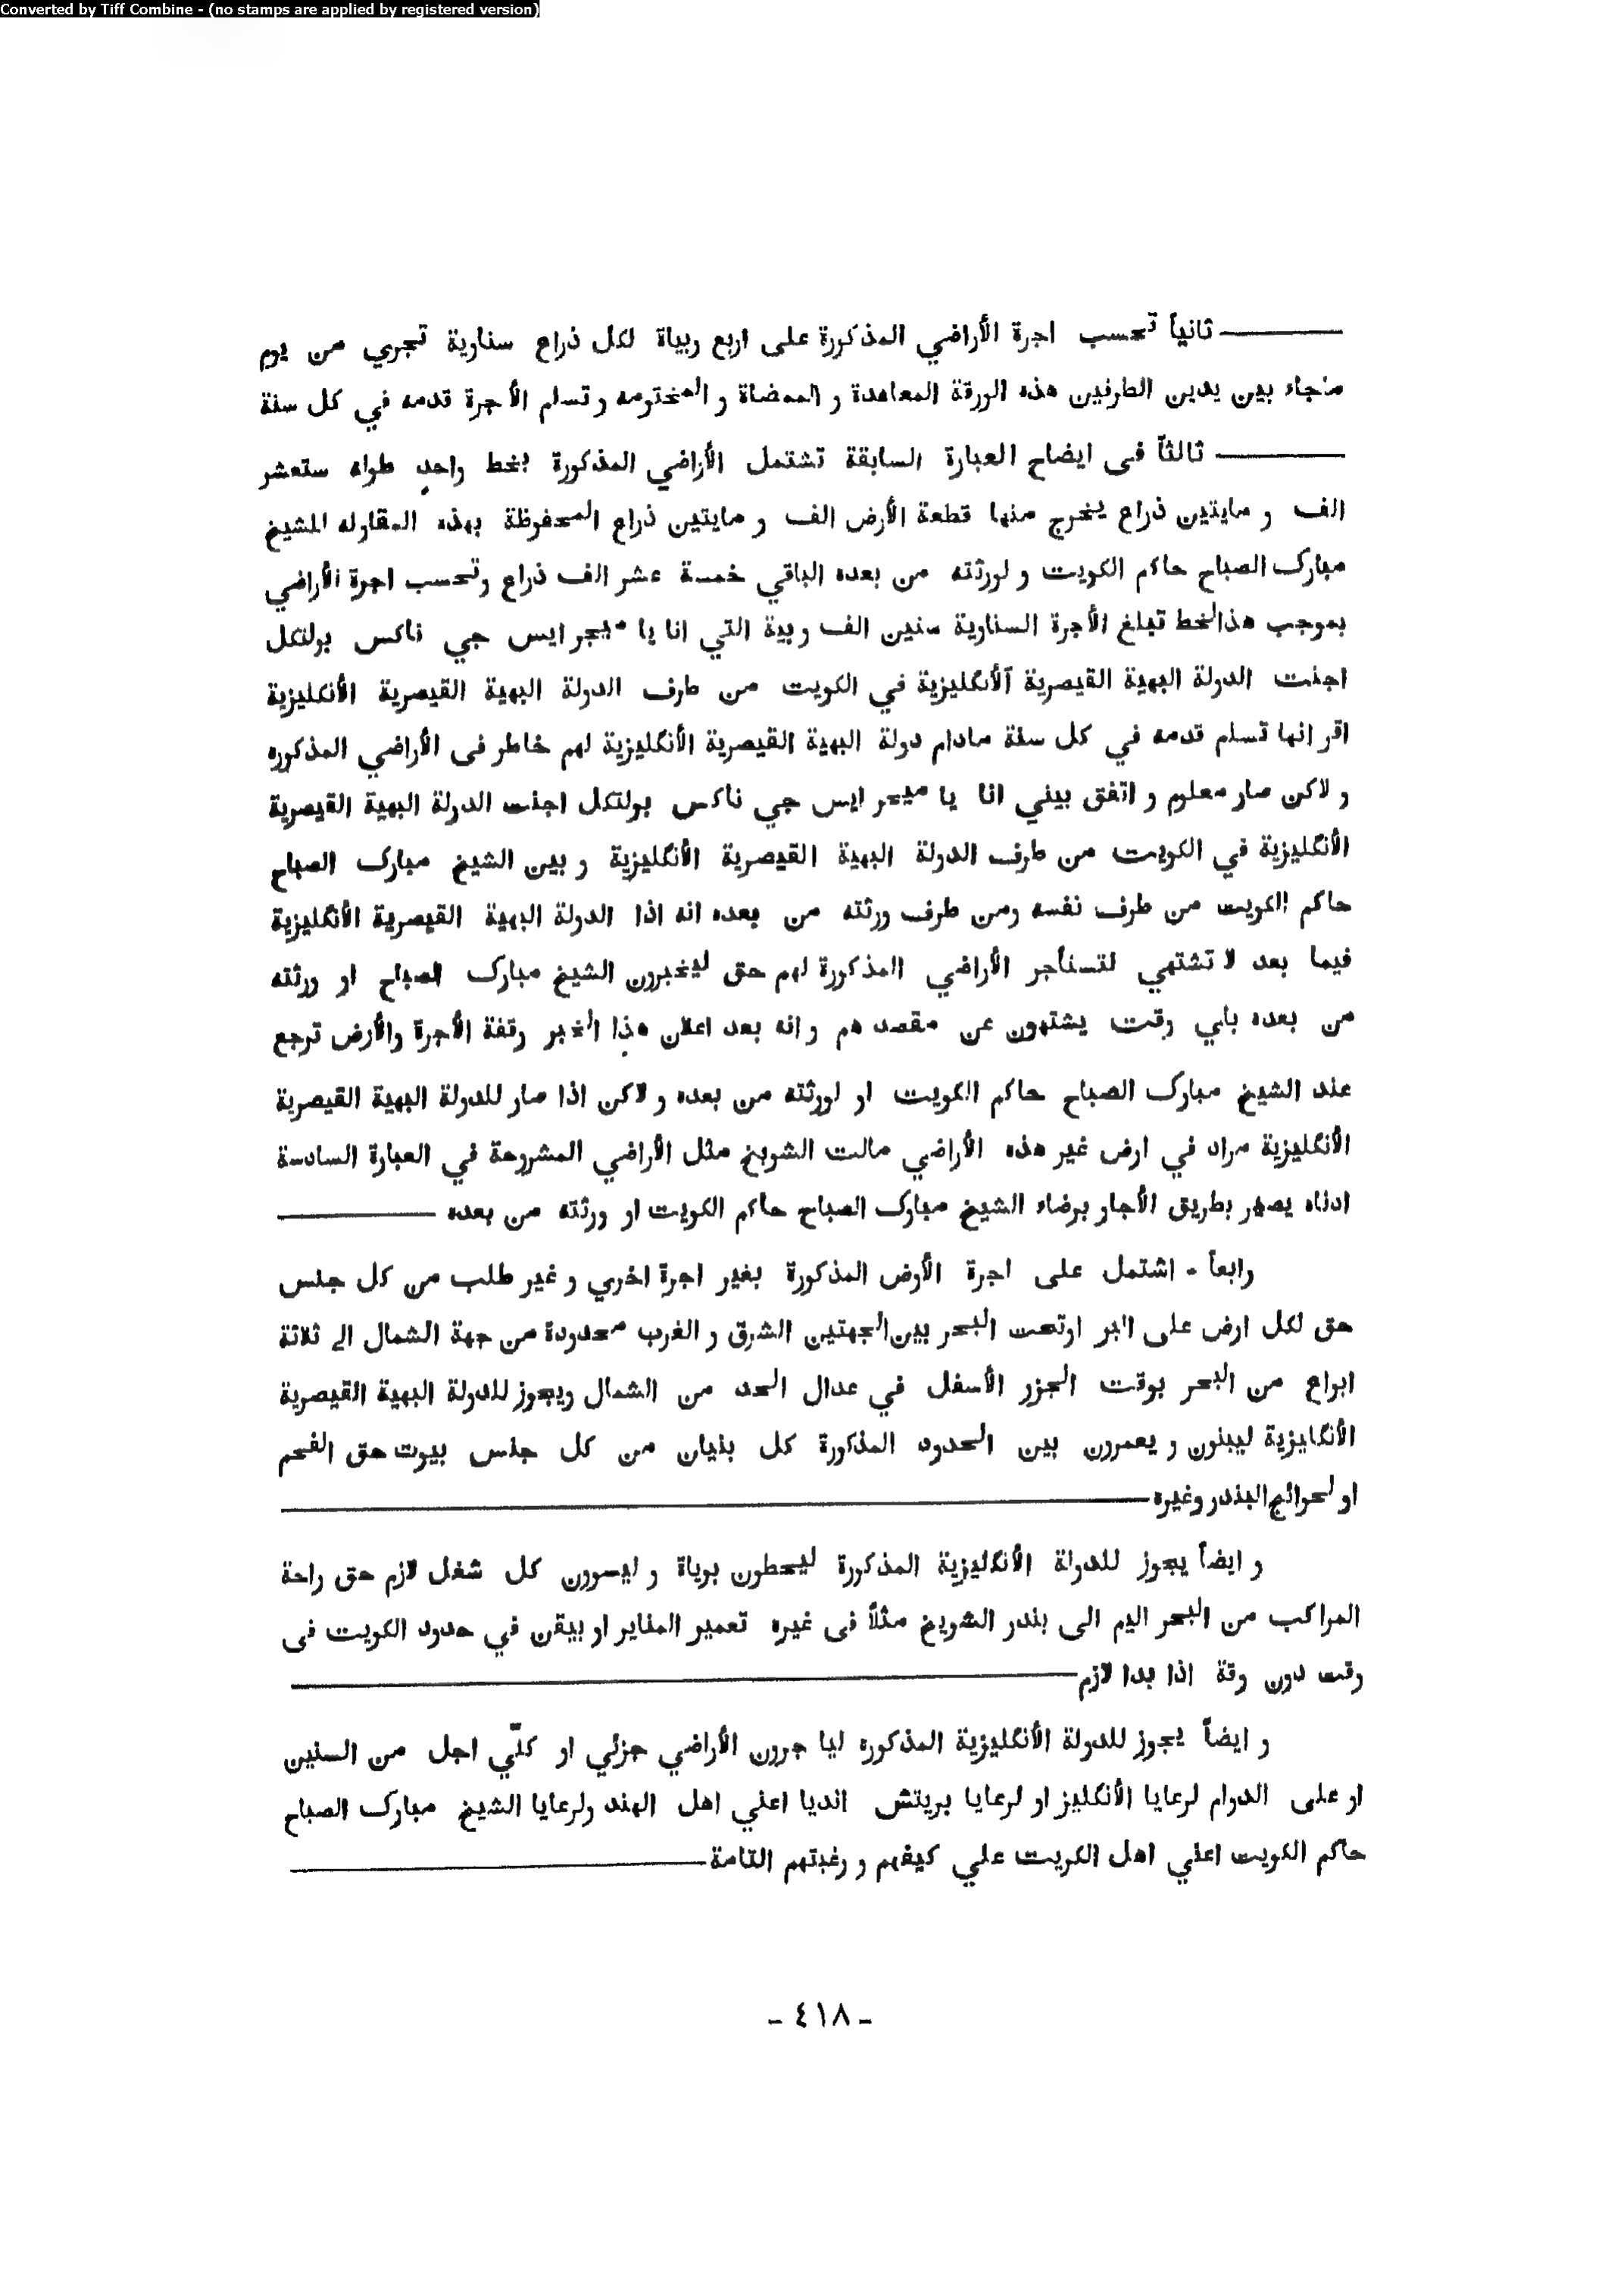 Converted by Tiff Combine - (no stamps are applied by registered version)
ثانياً تحسب اجرة الأراضي المذكورة على اربع ربياة لكل ذراع سناوية تجري من يوم
منجاء بين يدين الطرفين هذه الورقة المعاهدة و الممضاة و المختومه و تسلم الأجرة قدمه في كل سنة
ثالثاً فى ايضاح العبارة السابقة تشتمل الأراضي المذكورة بخط واحد طوله ستعشر
الف و مايتين ذراع يخرج منها قطعة الأرض الف و مايتين ذراع المحفوظة بهذه المقاوله للشيخ
مبارك الصباح حاكم الكويت و لورثته من بعده الباقي خمسة عشر الف ذراع وتحسب اجرة الأراضي
بموجب هذالخط تبلغ الأجرة السناوية ستين الف ربية التي انا يا ميجر ايس جي ناكس بولتكل
اجنت الدولة البهية القيصرية ألأنگليزية في الكويت من طرف الدولة البهية القيصرية الأنكليزية
اقر انها تسلم قدمه في كل سنة مادام دولة البهية القيصرية الأنگليزية لهم خاطر فى الأراضي المذكوره
و لاكن صار معلوم و اتفق بيني انا يا ميجر ايس جي ناكس بولتكل اجنت الدولة البهية القيصرية
الأنگليزية في الكويت من طرف الدولة البهية القيصرية الأنگليزية و بين الشيخ مبارك الصباح
حاكم الكويت من طرف نفسه ومن طرف ورثته من بعده انه اذا الدولة البهية القيصرية الأنگليزية
فيما بعد لا تشتهي لتستأجر الأراضي المذكورة لهم حق ليخبرون الشيخ مبارك الصباح او ورثته
من بعده باي وقت يشتهون عن مقصد هم و انه بعد اعلان هذا الخبر وقفة الأجرة والأرض ترجع
عند الشيخ مبارك الصباح حاكم الكويت او لورثته من بعده و لاكن اذا صار للدولة البهية القيصرية
الأنگليزية مراد في ارض غير هذه الأراضي مالت الشويخ مثل الأراضي المشروحة في العبارة السادسة
ادناه يصير بطريق الأجار برضاء الشيخ مبارك الصباح حاكم الكويت او ورثته من بعده
رابعاً - اشتمل على اجرة الأرض المذكورة بغير اجرة اخرى و غير طلب من كل جنس
حق لكل ارض على البر اوتحت البحر بين الجهتين الشرق و الغرب محدودة من جهة الشمال الى ثلاثة
ابراع من البحر بوقت الجزر الأسفل في عدال الحد من الشمال ويجوز للدولة البهية القيصرية
الأنگليزية ليبنون و يعمرون بين الحدود المذكورة كل بنيان من كل جنس بيوت حق الفحم
او لحرائج البندر وغيره
و ايضاً يجوز للدولة الأنگليزية المذكورة ليحطون برياة و ليسوون كل شغل لازم حق راحة
المراكب من البحر اليم الى بندر الشويخ مثلاً فى غيره تعمير المناير او بيقن في حدود الكويت فى
وقت دون وقة اذا بدا لازم
و ايضاً يجوز للدولة الأنگليزية المذكوره ليا جرون الأراضي جزئي او كلّي اجل من السنين
او على الدوام لرعايا الأنگليز او لرعايا بريتش انديا اعني اهل الهند ولرعايا الشيخ مبارك الصباح
حاكم الكويت اعني اهل الكويت علي كيفهم و رغبتهم التامة
- ٤١٨ -